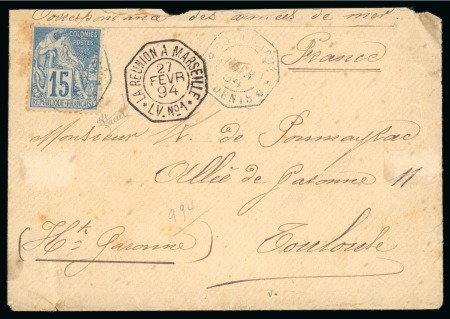 Correspondance des armées de mer
France
COLONIES
POSTES
15
REPUBLIQUE FRANCAISE
LA REUNION A MARSEILLE
27
FEVR
94
L.V. No 1
DENIS
Monsieur K. de
Allée de Garonne 11
994
(Hte Garonne)
Toulouse